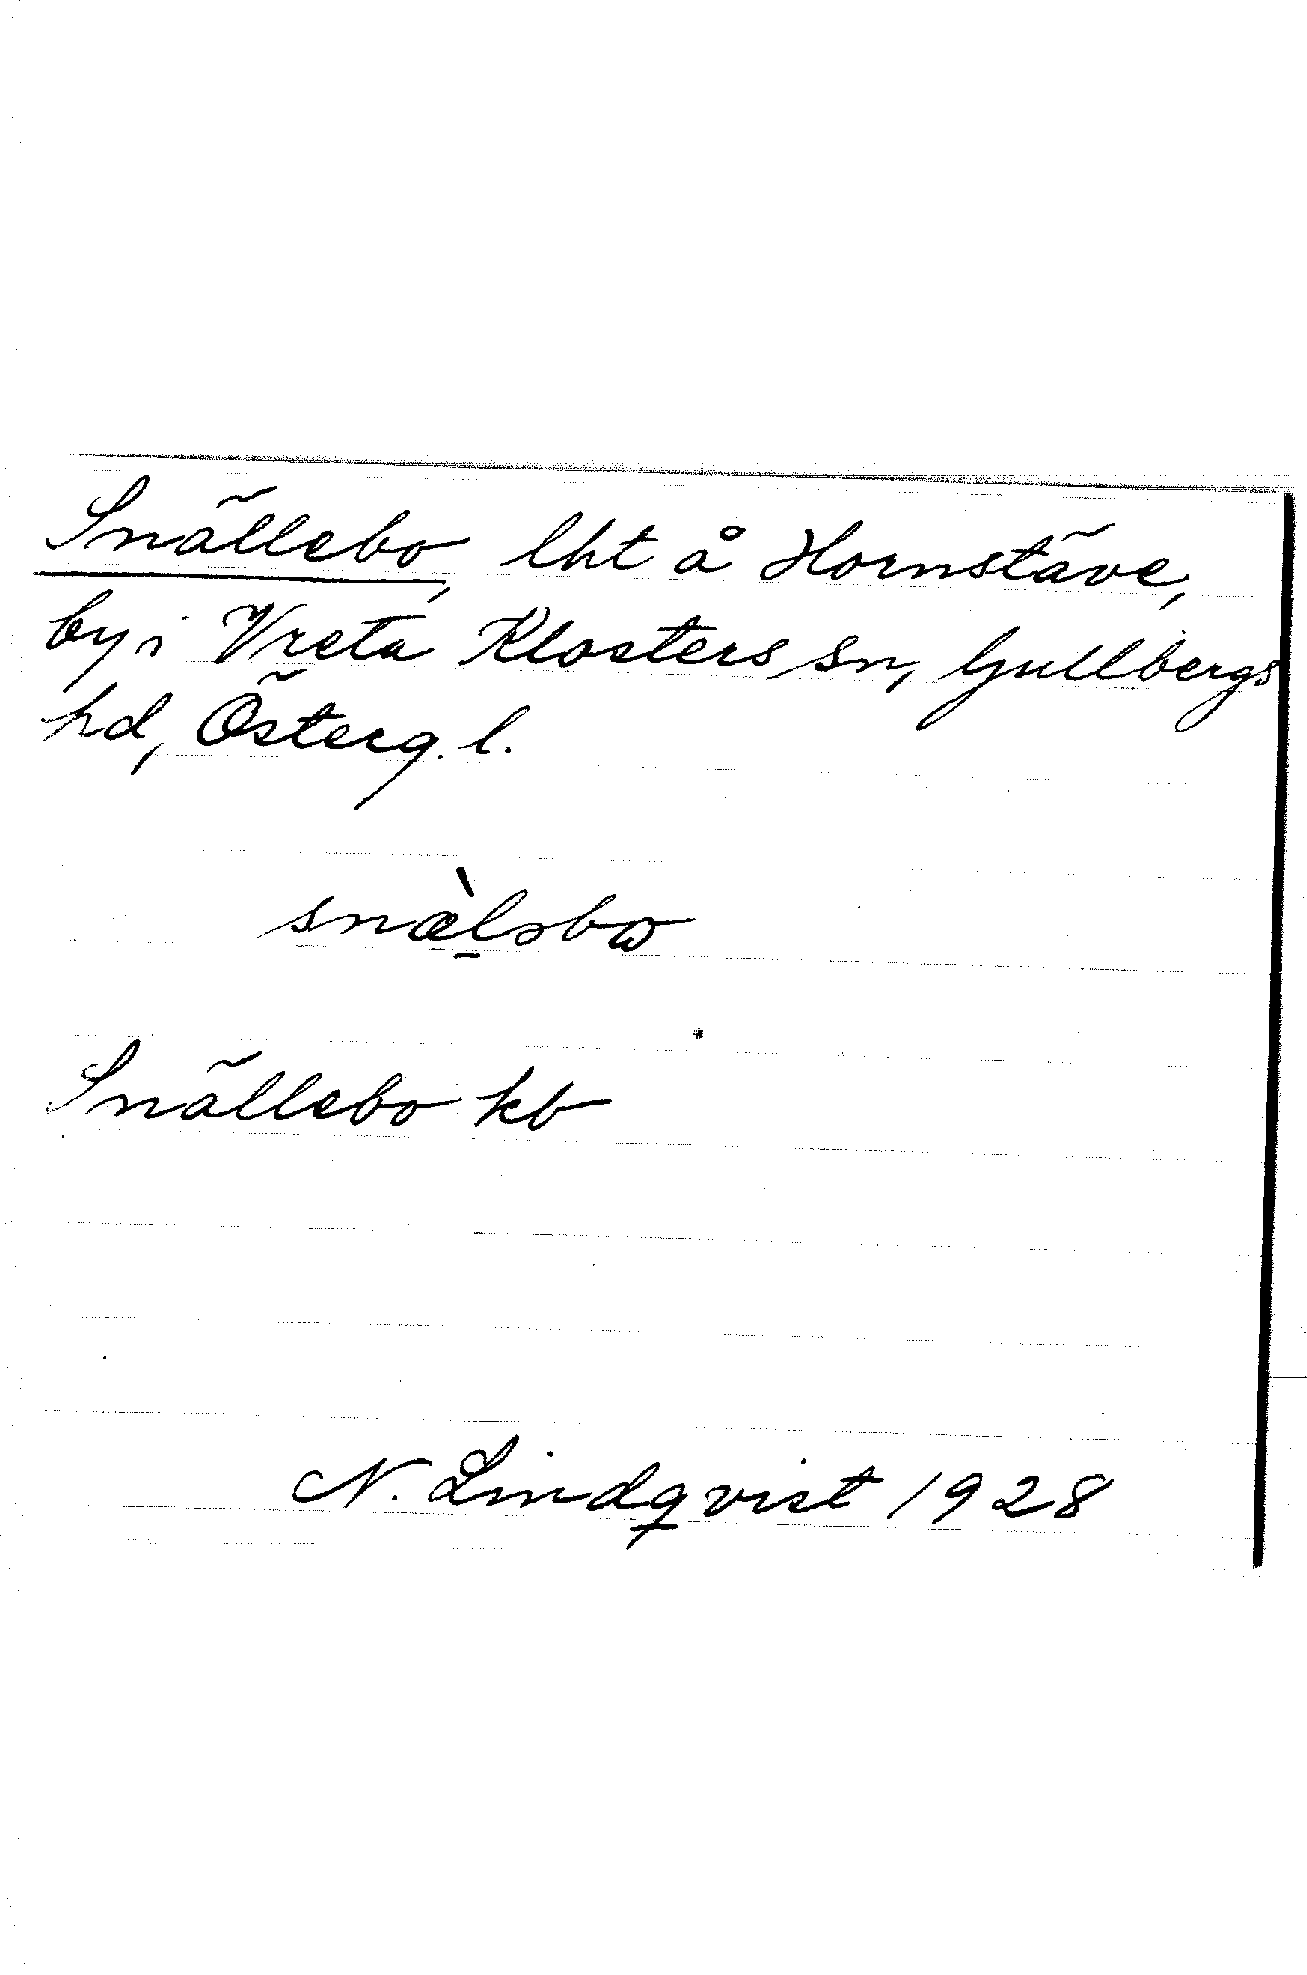 Snällebo, lht å Hornstäve,
by i Vreta Klosters sn, Gullbergs
hd, Österg. l.
snæ̀l̠əbɷ
Snällebo kb
N. Lindqvist 1928